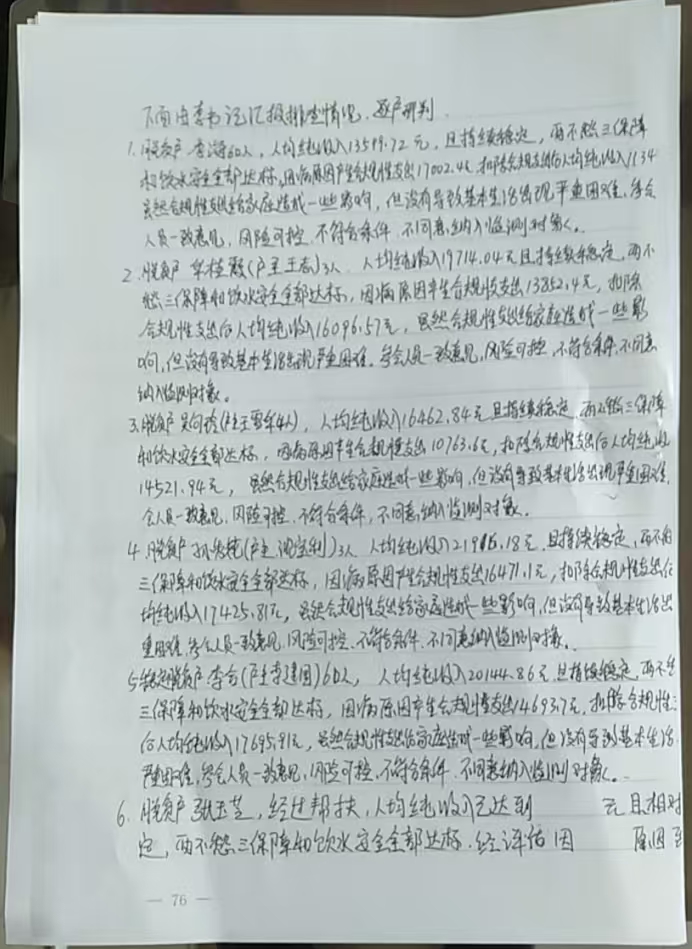 下面由李书记汇报排查情况,逐户研判
1.脱贫户 李海6口人,人均纯收入13599.72元,且持续稳定,两不愁三保障
和饮水安全全部达标,因病原因产生合规性支出17002.4元,扣除合规支出后人均纯收入1134
虽然合规性支出给家庭造成一些影响,但没有导致基本生活出现严重困难,参会
人员一致意见,风险可控,不符合条件,不同意纳入监测对象。
2.脱贫户 华桂霞(户主王志)3人,人均纯收入19714.04元且持续稳定,两不
愁三保障和饮水安全全部达标,因病原因产生合规性支出13852.4元,扣除
合规性支出后人均纯收入16096.57元,虽然合规性支出给家庭造成一些影
响,但没有导致基本生活出现严重困难,参会人员一致意见,风险可控,不符合条件,不同意
纳入监测对象。
3.脱贫户 吴向玲(户主王雪年4人),人均纯收入16462.84元且持续稳定,两不愁三保障
和饮水安全全部达标,因病原因产生合规性支出10763.6元,扣除合规性支出后人均纯收
14521.94元,虽然合规性支出给家庭造成一些影响,但没有导致基本生活出现严重困难,
会人员一致意见,风险可控,不符合条件,不同意纳入监测对象。
4.脱贫户 孙 (户主 宝利)3人 人均纯收入219 5.18元,且持续稳定,两不愁
三保障和饮水安全全部达标,因病原因产生合规性支出16471.1元,扣除合规性支出后
均纯收入17425.81元,虽然合规性支出给家庭造成一些影响,但没有导致基本生活出
重困难,参会人员一致意见,风险可控,不符合条件,不同意纳入监测对象。
5.稳定脱贫户 李合(户主李建国)6口人,人均纯收入20144.86元且持续稳定,两不愁
三保障和饮水安全全部达标,因病原因产生合规性支出14693.7元,扣除合规性
后人均纯收入17695.91元,虽然合规性支出给家庭造成一些影响,但没有导致基本生活
严重困难,参会人员一致意见,风险可控,不符合条件,不同意纳入监测对象。
6.脱贫户 张玉芝,经过帮扶,人均纯收入已达到 元且相对
定,两不愁三保障和饮水安全全部达标,经评估因 原因
— 76 —